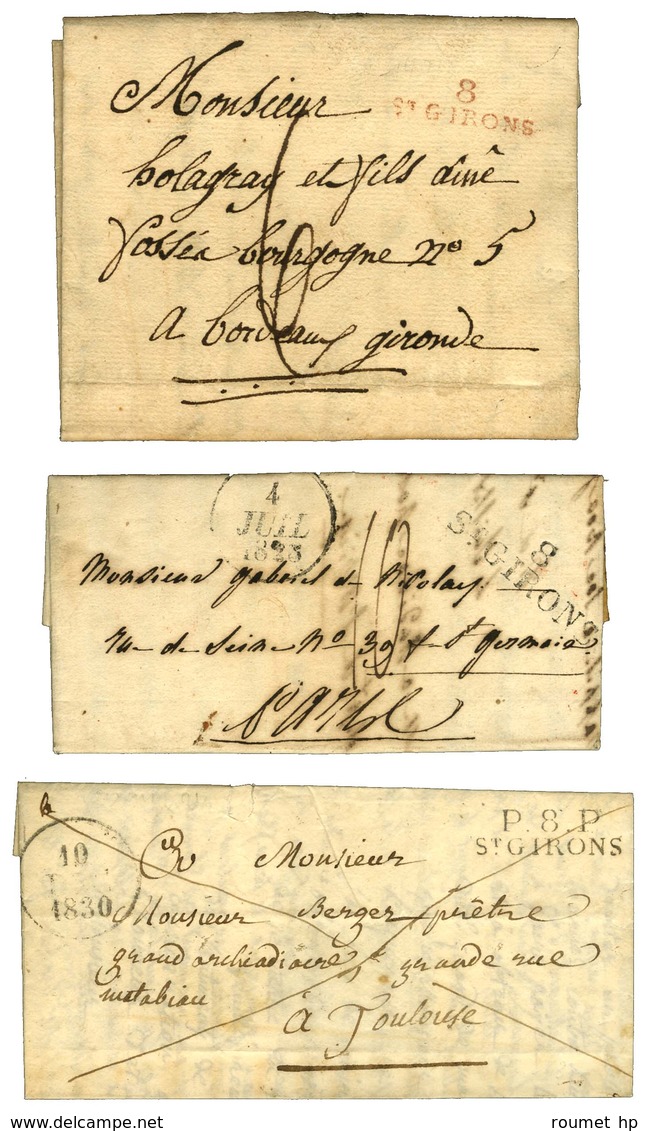 8
St GIRONS
Monsieur
holagray et fils ainé
fossés bourgogne no 5
a bordeaux gironde
4
JUIL
1823
8
St GIRONS
Monsieur gabriel de Nicolay
rue de Seine No 39 f. St germain
PARIS
P. 8. P
St GIRONS
10
1830
Monsieur
Monsieur Berger prêtre
grand archidiacre grande rue
matabiau
à Toulouse
roumet hp